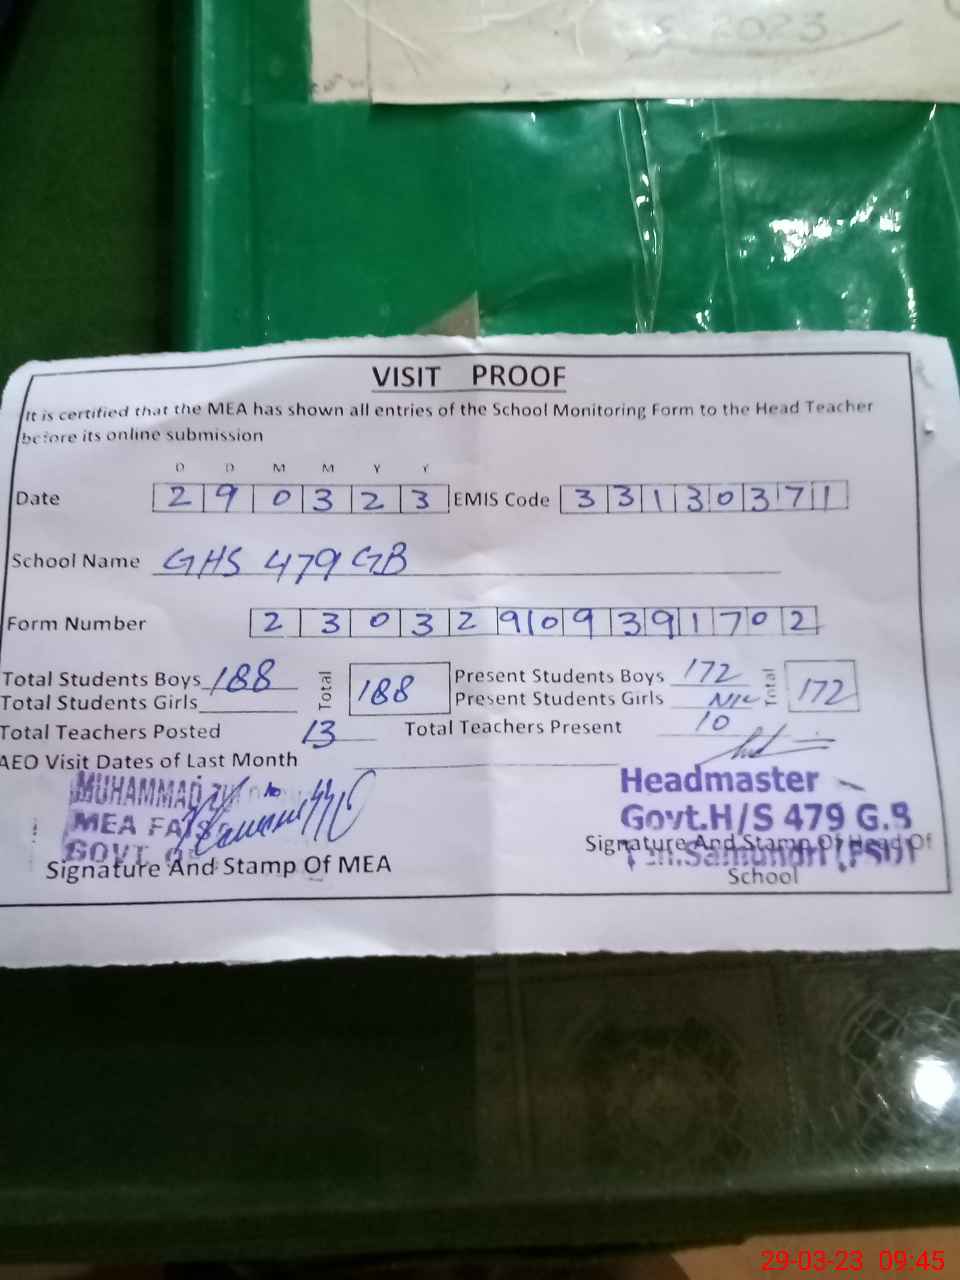 2023
VISIT PROOF
It is certified that the MEA has shown all entries of the School Monitoring Form to the Head Teacher
before its online submission
D D M M Y Y
Date 2 9 0 3 2 3 EMIS Code 3 3 1 3 0 3 7 1
School Name GHS 479 GB
Form Number 2 3 0 3 2 9 1 0 9 3 9 1 7 0 2
Total Students Boys 188 Total 188 Present Students Boys 172 Total 172
Total Students Girls Present Students Girls NIL
Total Teachers Posted 13 Total Teachers Present 10
AEO Visit Dates of Last Month
MUHAMMAD
MEA
GOVT
Signature And Stamp Of MEA
Headmaster
Govt.H/S 479 G.B
Signature And Stamp Of Head Of
Samundri (FSD)
School
29-03-23 09:45